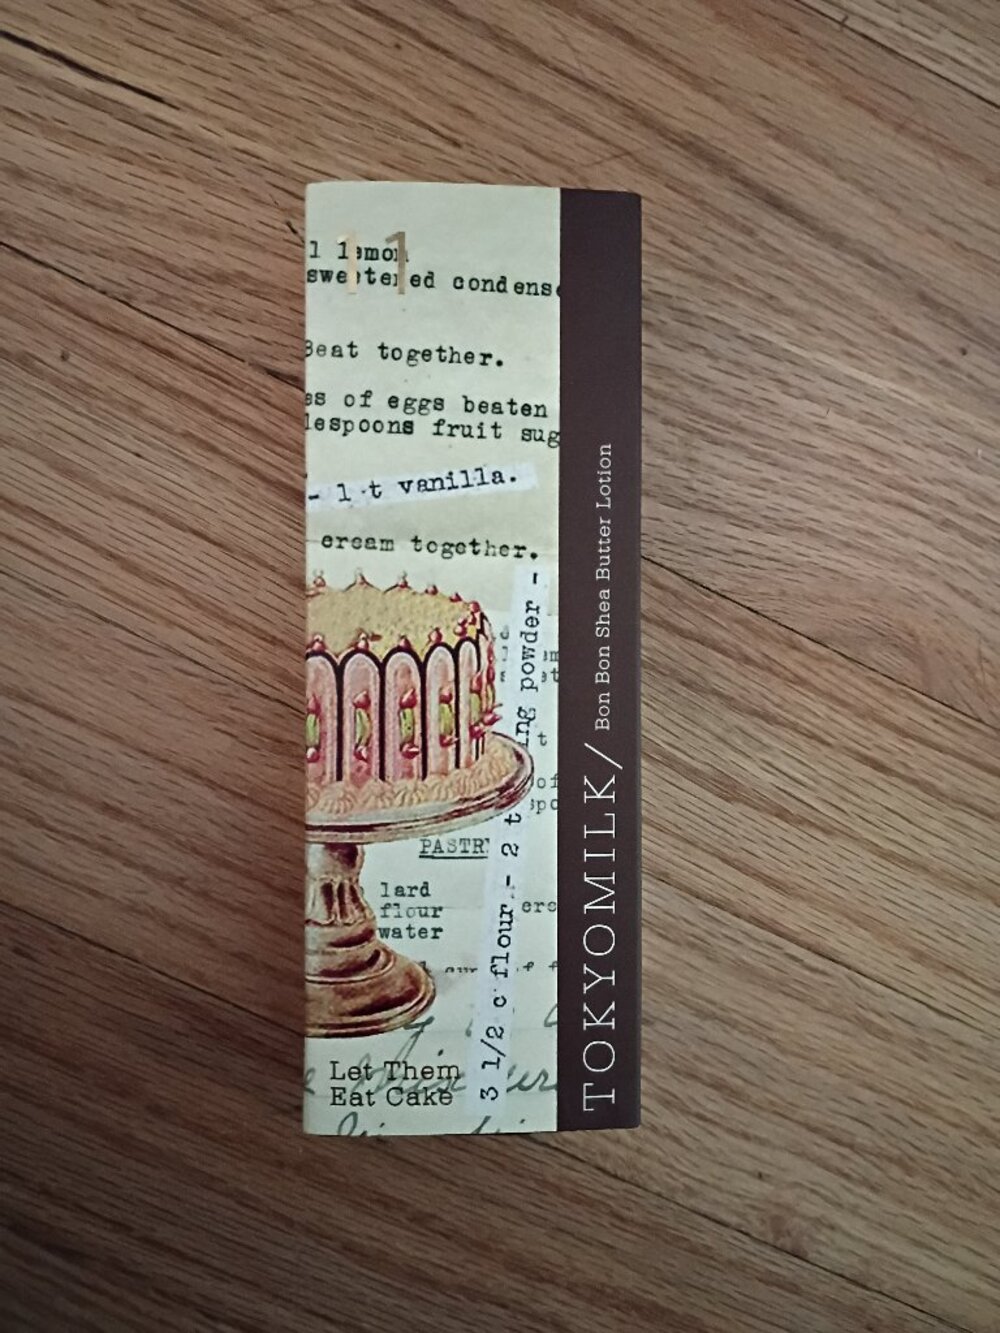 11
1 lemon
sweetened condense
Beat together.
es of eggs beaten
lespoons fruit sug
- 1 t vanilla.
cream together.
PASTR
lard
flour
water
3 1/2 c flour - 2 t ing powder -
Let Them
Eat Cake
TOKYOMILK/ Bon Bon Shea Butter Lotion